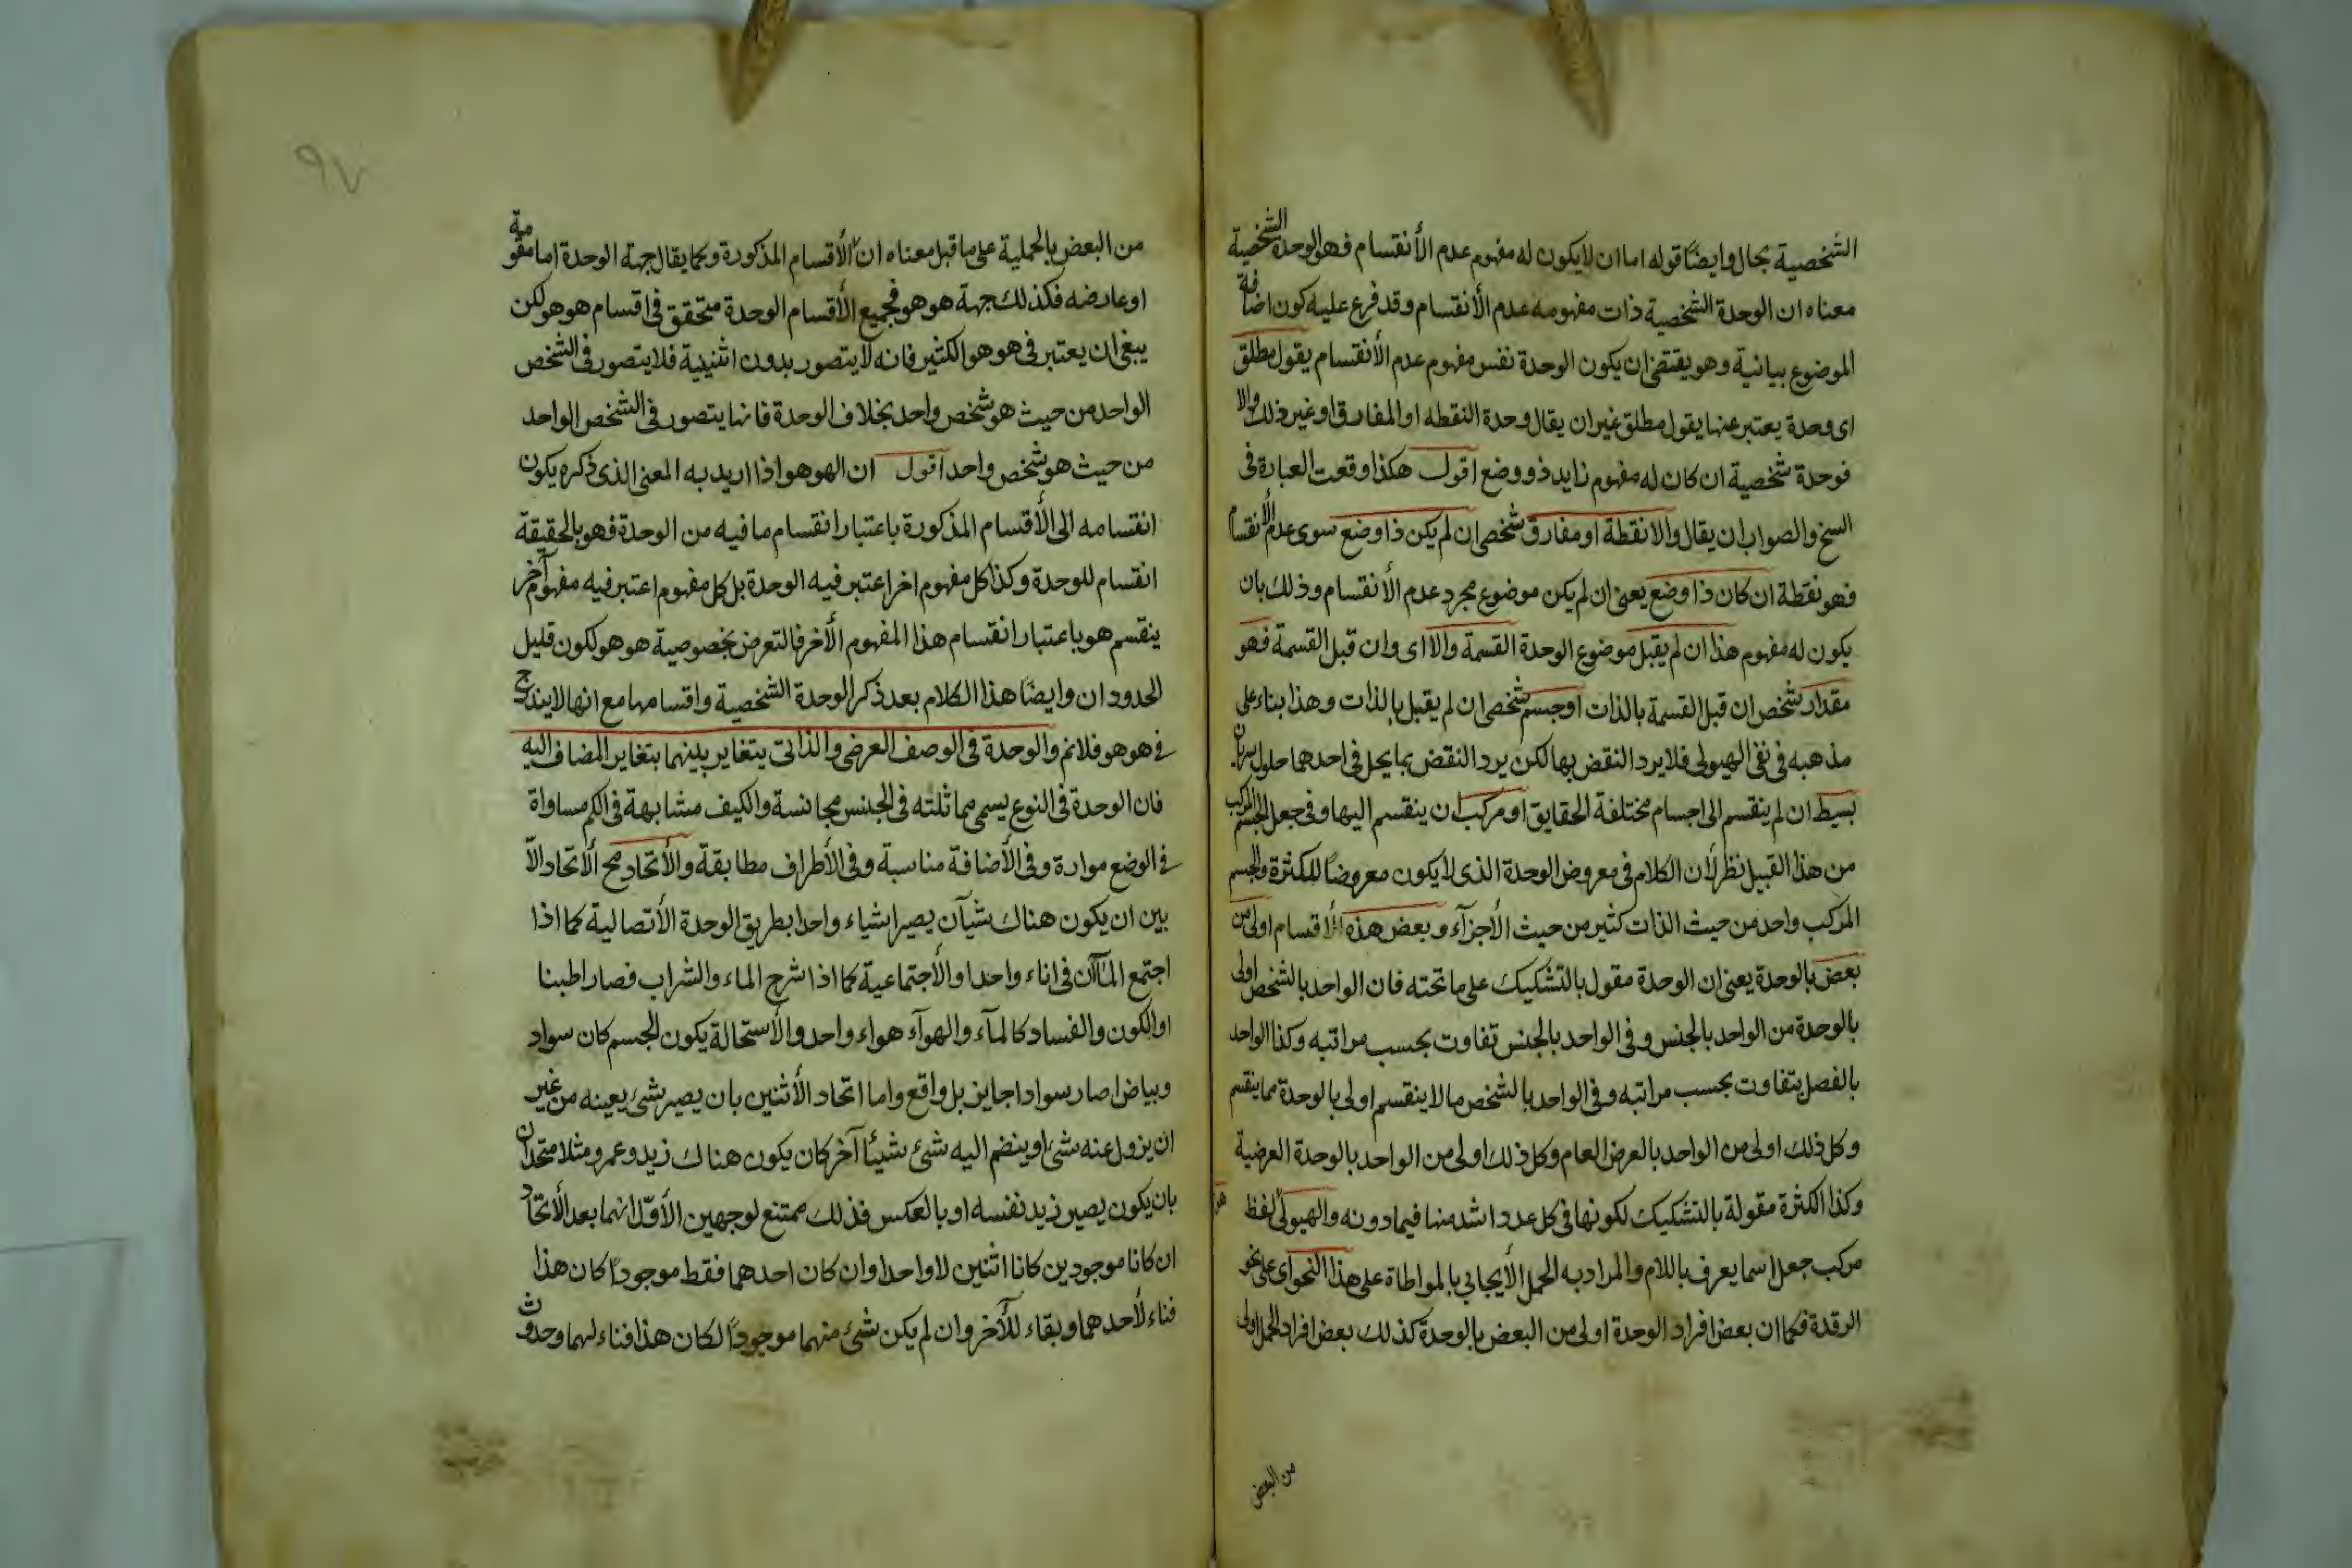 الشخصية بحال وايضًا قوله اما ان لا يكون له مفهوم عدم الأنقسام فهو الوحدة الشخصية
معناه ان الوحدة الشخصية ذات مفهومه عدم الأنقسام وقد فرع عليه كون اضافة
الموضوع بيانية وهو يقتضى ان يكون الوحدة نفس مفهوم عدم الأنقسام يقول مطلق
اى وحدة يعتبر عنها يقول مطلق غير ان يقال وحدة النقطه او المفارق او غير ذلك والا
فوحدة شخصية ان كان له مفهوم زايد ذو وضع اقول هكذا وقعت العبارة فى
السخ والصواب ان يقال والا نقطة او مفارق شخص ان لم يكن ذا وضع سوى عدم الأنقسام
فهو نقطة ان كان ذا وضع يعنى ان لم يكن موضوع مجرد عدم الأنقسام وذلك بان
يكون له مفهوم هذا ان لم يقبل موضوع الوحدة القسمة والا اى وان قبل القسمة فهو
مقدار شخص ان قبل القسمة بالذات او جسم شخص ان لم يقبل بالذات وهذا بناء على
مذهبه فى نفى الهيولى فلا يرد النقض بها لكن يرد النقض بما يحل فى احدهما حلول سريان
بسيط ان لم ينقسم الى اجسام مختلفة الحقايق او مركب ان ينقسم اليها وفى جعل الجسم المركب
من هذا القبيل نظر لأن الكلام فى معروض الوحدة الذى لا يكون معروضًا للكثرة والجسم
المركب واحد من حيث الذات كثير من حيث الأجزآء وبعض هذه الأقسام اولى من
بعض بالوحدة يعنى ان الوحدة مقول بالتشكيك على ما تحته فان الواحد بالشخص اولى
بالوحدة من الواحد بالجنس وفى الواحد بالجنس تفاوت بحسب مراتبه وكذا الواحد
بالفصل يتفاوت بحسب مراتبه وفى الواحد بالشخص ما لا ينقسم اولى بالوحدة مما ينقسم
وكل ذلك اولى من الواحد بالعرض العام وكل ذلك اولى من الواحد بالوحدة العرضية
وكذا الكثرة مقولة بالتشكيك لكونها فى كل عدد اشد منها فيما دونه والهيولى لفظ
مركب جعل اسما يعرف باللام والمراد به الحمل الأيجابي بالمواطاة على هذا النحو اى على نحو
الرقدة فكما ان بعض افراد الوحدة اولى من البعض بالوحدة كذلك بعض افراد الحمل اولى
من البعض
٩٧
من البعض بالحملية على ما قبل معناه ان الأقسام المذكورة وكما يقال جهة الوحدة اما مقومة
او عارضه فكذلك جهة هو هو فجميع الأقسام الوحدة متحقق فى اقسام هو هو لكن
يبغى ان يعتبر فى هو هو الكثير فانه لا يتصور بدون اثنينية فلا يتصور فى الشخص
الواحد من حيث هو شخص واحد بخلاف الوحدة فانها يتصور فى الشخص الواحد
من حيث هو شخص واحد اقول ان الهو هو اذا اريد به المعنى الذى ذكره يكون
انقسامه الى الأقسام المذكورة باعتبار انقسام ما فيه من الوحدة فهو بالحقيقة
انقسام للوحدة وكذا كل مفهوم اخر اعتبر فيه الوحدة بل كل مفهوم اعتبر فيه مفهوم آخر
ينقسم هو باعتبار انقسام هذا المفهوم الأخر فالتعرض بخصوصية هو هو لكون قليل
الحدود ان وايضًا هذا الكلام بعد ذكر الوحدة الشخصية واقسامها مع انها لا يندرج
فى هو هو فلا نم والوحدة فى الوصف العرضى والذاتى يتغاير بينهما بتغاير المضاف اليه
فان الوحدة فى النوع يسمى مماثلته فى الجنس مجانسة والكيف مشابهة فى الكم مساواة
فى الوضع موارة وفى الأضافة مناسبة وفى الأطراف مطابقة والأتحاد مح الأتحاد الاّ
بين ان يكون هناك شيآن يصير اشياء واحدا بطريق الوحدة الأتصالية كما اذا
اجتمع المآآن فى اناء واحد او الأجتماعية كما اذا شرج الماء والشراب فصار اطبنا
او الكون والفساد كالمآء والهوآء هواء واحد والأستحالة يكون الجسم كان سواد
وبياض اصار سوادا جايز بل واقع واما اتحاد الأثنين بان يصير شئ بعينه من غير
ان يزول عنه شئ او ينضم اليه شئ شيئًا آخر كان يكون هناك زيد وعمرو مثلا متحدان
بان يكون يصير زيد نفسه او بالعكس فذلك ممتنع لوجهين الأوّل انهما بعد الأتحاد
ان كانا موجودين كانا اثنين لا واحدا وان كان احدهما فقط موجودًا كان هذا
فناء لأحدهما وبقاء للأخر وان لم يكن شئ منهما موجودًا لكان هذا فناء لهما وحدوث